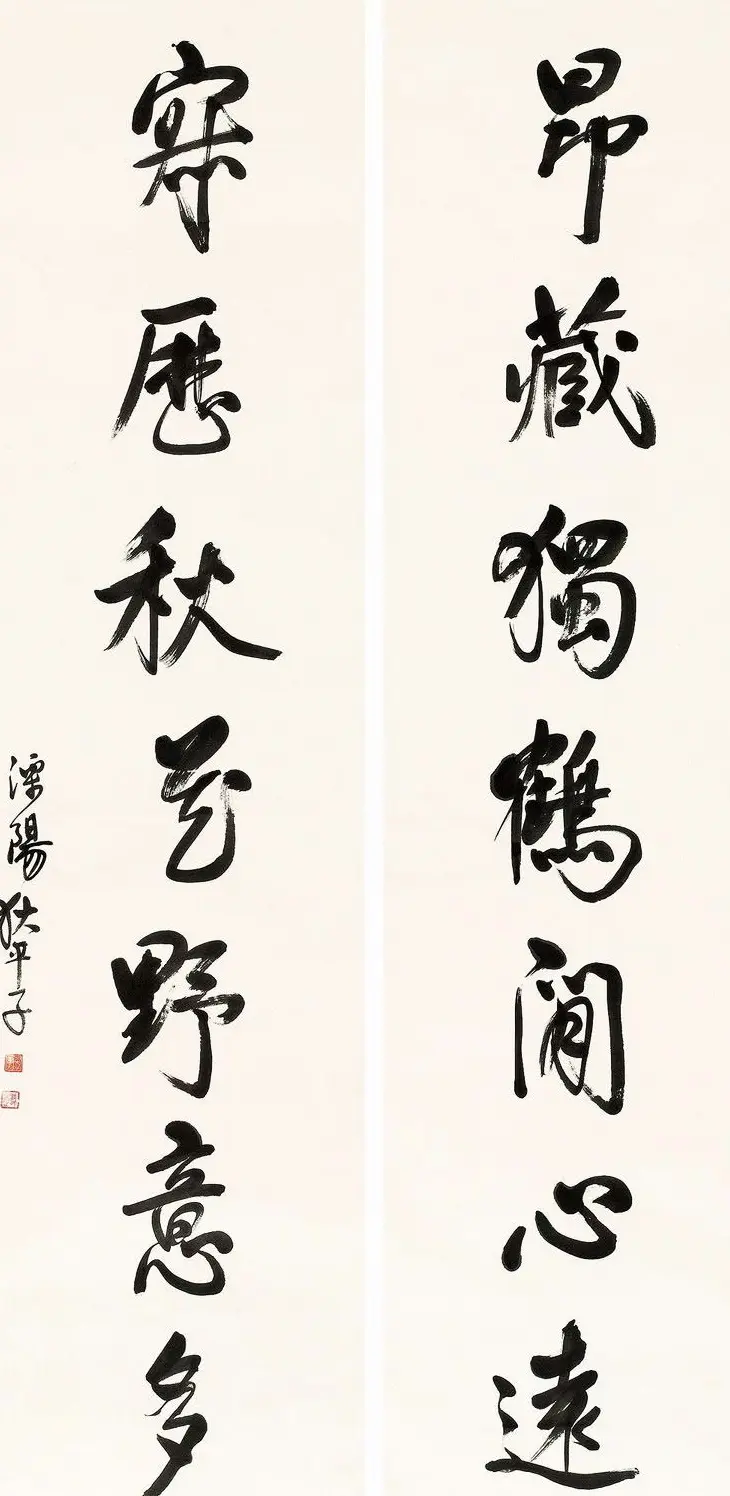 昂藏獨鶴閒心遠
寂歷秋花野意多
溧陽狄平子